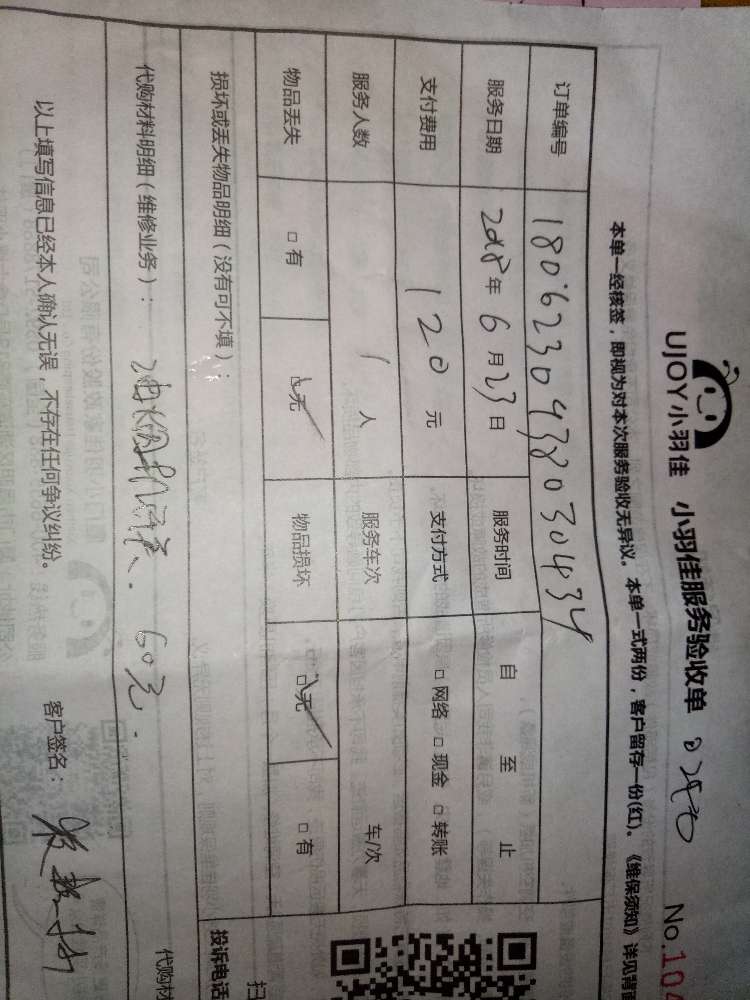 UJOY小羽佳 小羽佳服务验收单 No.10
本单一经核签，即视为对本次服务验收无异议。 本单一式两份，客户留存一份(红)。《维保须知》详见背
订单编号 180623093803043４
服务日期 2018年6月23日 服务时间 自 至 止
支付费用 120元 支付方式 □网络 □现金 □转账
服务人数 1人 服务车次 车/次
物品丢失 □有 □无 物品损坏 □无 □有
损坏或丢失物品明细（没有可不填）：
投诉电话
扫
代购材料明细（维修业务）： 油烟机清洗. 60元. 代购材
以上填写信息已经本人确认无误，不存在任何争议纠纷。 客户签名：